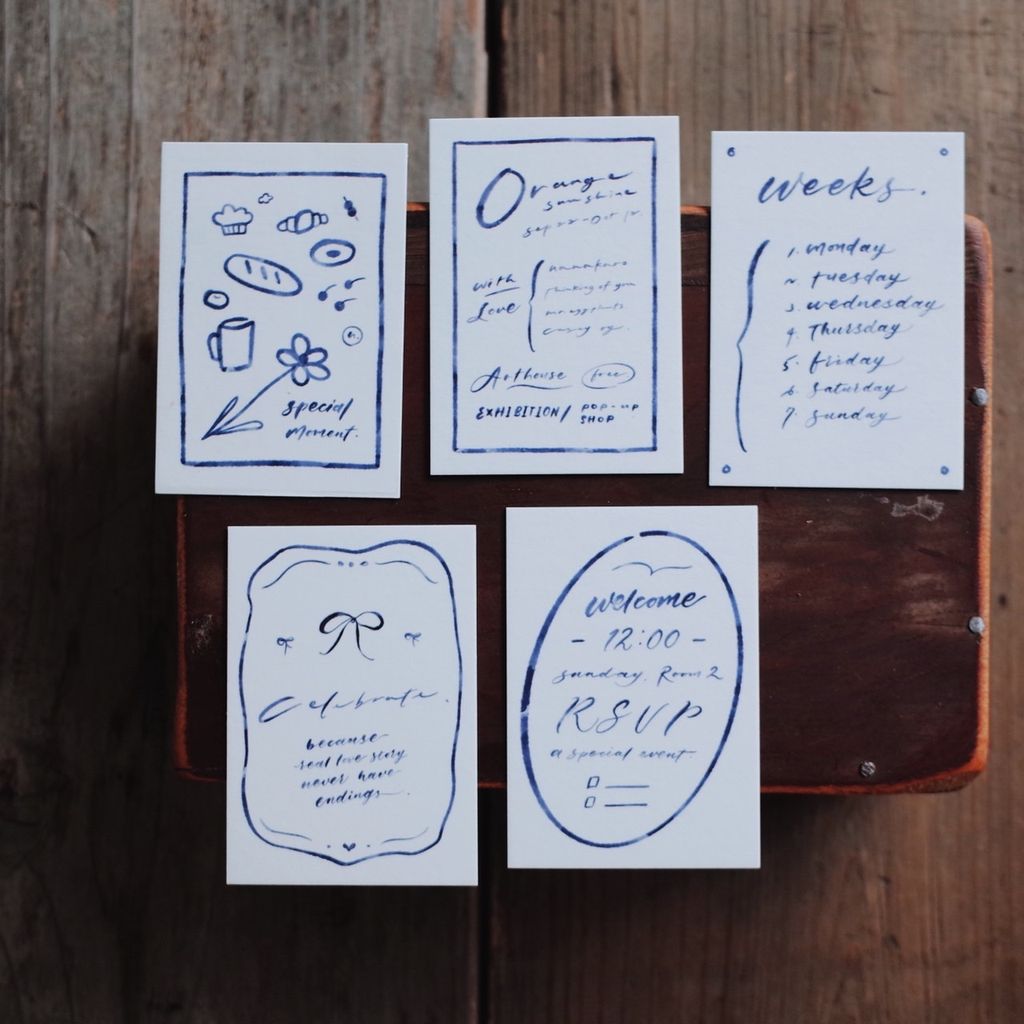 special
moment.
Orange
sunshine
with
Love
thinking of you
Arthouse
free
EXHIBITION/
POP-UP
SHOP
weeks.
1. monday
2. tuesday
3. wednesday
4. Thursday
5. friday
6. saturday
7. sunday
Celebrate.
because
real love story
never have
endings.
welcome
- 12:00 -
sunday, Room 2
RSVP
a special event.